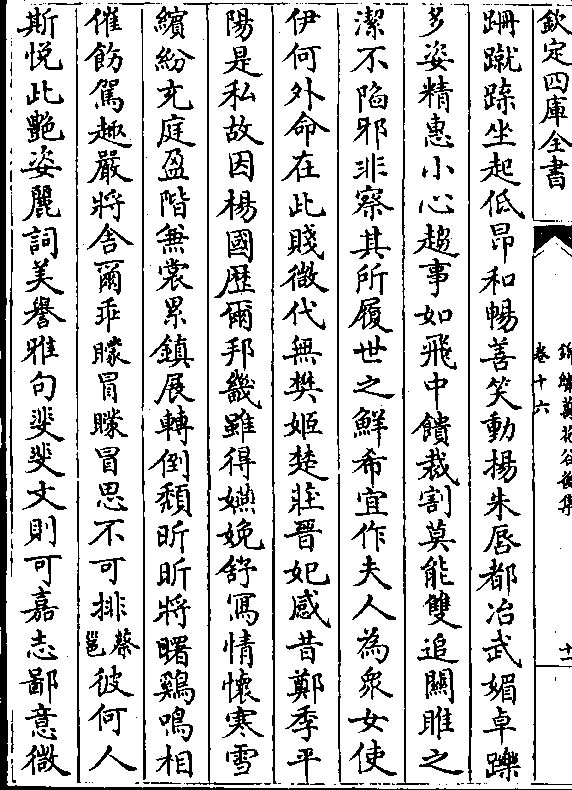 欽定四庫全書
錦繡萬花谷後集
卷十六
十一
跚蹴蹀坐起低昂和暢善笑動揚朱唇都冶武媚卓躒
多姿精惠小心趨事如飛中饋裁割莫能雙追關雎之
潔不陷邪非察其所履世之鮮希宜作夫人為衆女使
伊何外命在此賤微代無樊姬楚莊晉妃感昔鄭季平
陽是私故因楊國歴爾邦畿雖得嬿婉舒寫情懷寒雪
繽紛充庭盈階無裳累鎮展轉倒頹昕昕將曙鷄鳴相
催飭駕趣嚴將舍爾乖矇冒矇冒思不可排蔡邕彼何人
斯悦此艶姿麗詞美譽雅句斐斐文則可嘉志鄙意微